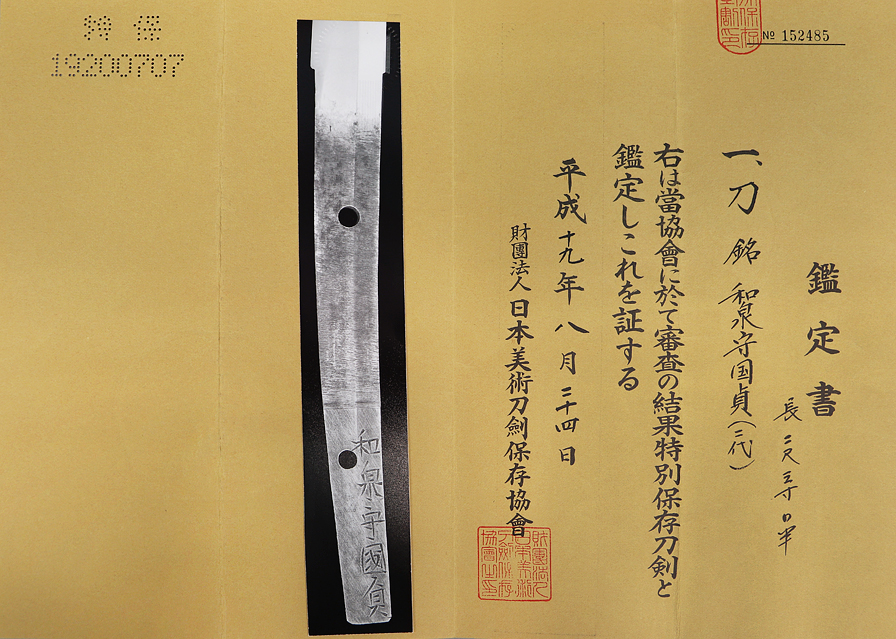 № 152485
鑑定書
長二尺三寸口半
一、刀 銘 和泉守国貞(二代)
右は當協會に於て審査の結果特別保存刀剣と
鑑定しこれを証する
平成十九年八月二十四日
財團法人日本美術刀劍保存協會
和泉守國貞
特保
19200707